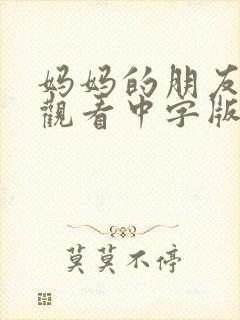 妈妈的朋友
觀看中字版
莫莫不停